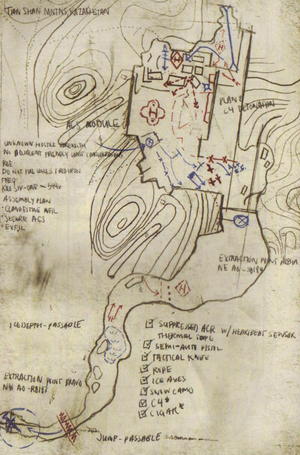 TIAN SHAN MNTNS, KAZAKHSTAN
ACS MODULE
PLANT
C4 DETONATION
UNKNOWN HOSTILE STRENGTH
NO ADJACENT FRIENDLY UNIT
ROE
DO NOT FIRE UNLESS FIRED UPON
FREQ
ASSEMBLY PLAN
SECURE ACS
EXFIL
EXTRACTION POINT ALPHA
NE AO
ICE DEPTH - PASSABLE
EXTRACTION POINT BRAVO
NW AO
SUPPRESSED ACR W/ HEARTBEAT SENSOR
THERMAL SCOPE
SEMI-AUTO PISTOL
TACTICAL KNIFE
ROPE
ICE AXES
SNOW CAMO
C4
CIGAR
JUMP - PASSABLE